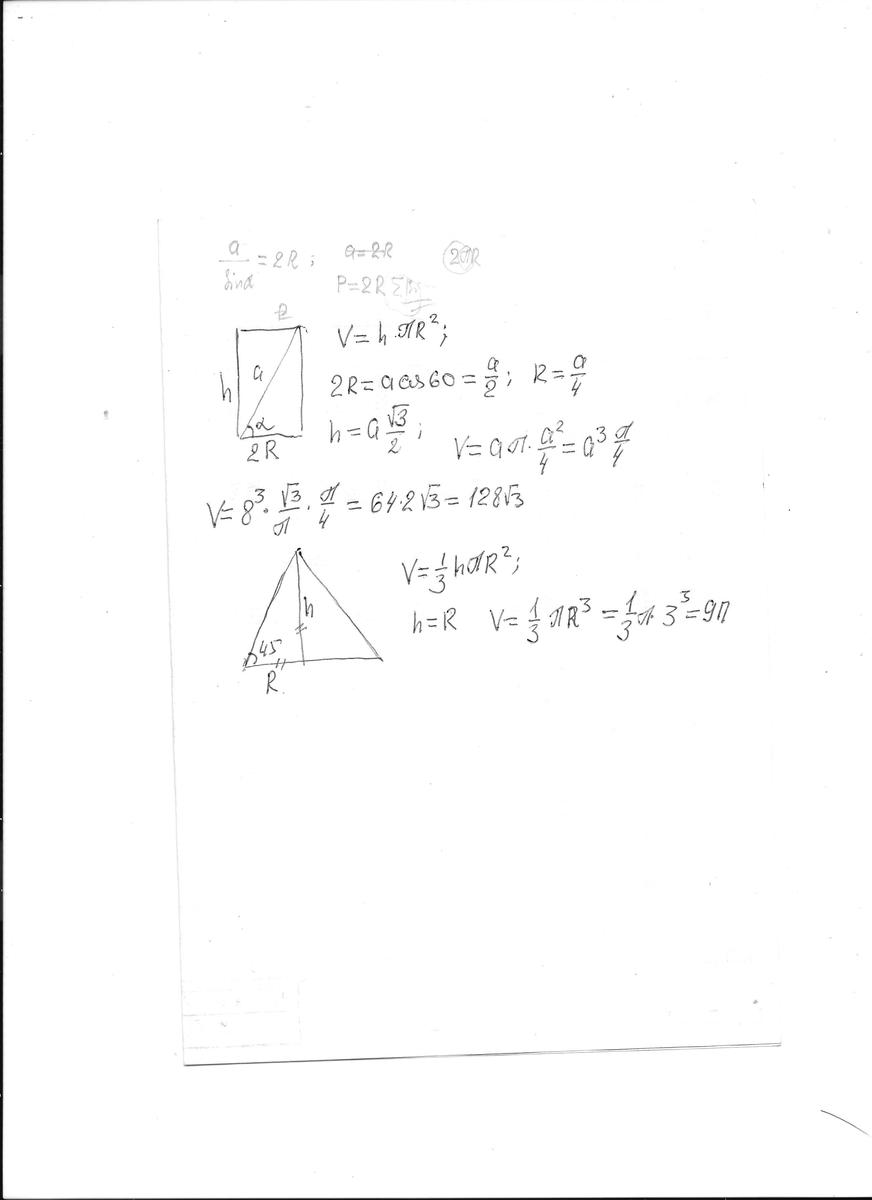 a/sinα = 2R; a=2R 2πR
P=2R Σ
R
V= h·πR²;
h a α 2R
2R= a cos60 = a/2; R= a/4
h= a √3/2; V= aπ· a²/4 = a³ π/4
V= 8³· √3/π · π/4 = 64·2√3 = 128√3
V= 1/3 hπR²;
h 45 R
h=R V= 1/3 πR³ = 1/3 π· 3³ = 9π